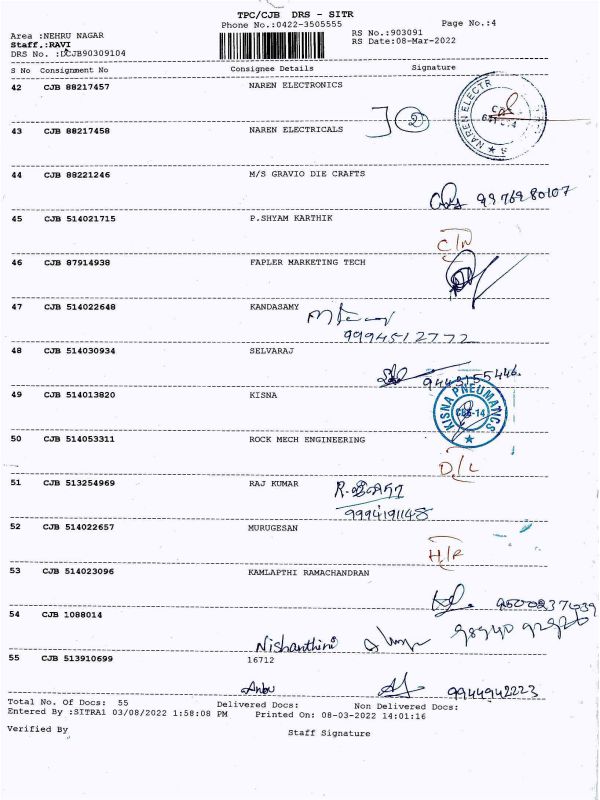 TPC/CJB DRS - SITR
Phone No.:0422-3505555
Page No.:4
Area :NEHRU NAGAR
RS No.:903091
Staff.:RAVI
RS Date:08-Mar-2022
DRS No. :DCJB90309104
S No Consignment No Consignee Details Signature
42 CJB 88217457 NAREN ELECTRONICS
NAREN ELECTR
2
43 CJB 88217458 NAREN ELECTRICALS
44 CJB 88221246 M/S GRAVIO DIE CRAFTS
9976980107
45 CJB 514021715 P.SHYAM KARTHIK
C/N
46 CJB 87914938 FAPLER MARKETING TECH
47 CJB 514022648 KANDASAMY
9994512772
48 CJB 514030934 SELVARAJ
9443155446.
49 CJB 514013820 KISNA
KISNA PNEUMATICS
CBE-14
50 CJB 514053311 ROCK MECH ENGINEERING
D/L
51 CJB 513254969 RAJ KUMAR
9994191148
52 CJB 514022657 MURUGESAN
H/R
53 CJB 514023096 KAMLAPTHI RAMACHANDRAN
54 CJB 1088014
Nishanthini
55 CJB 513910699 16712
Anbu 9944942223
Total No. Of Docs: 55 Delivered Docs: Non Delivered Docs:
Entered By :SITRA1 03/08/2022 1:58:08 PM Printed On: 08-03-2022 14:01:16
Verified By Staff Signature